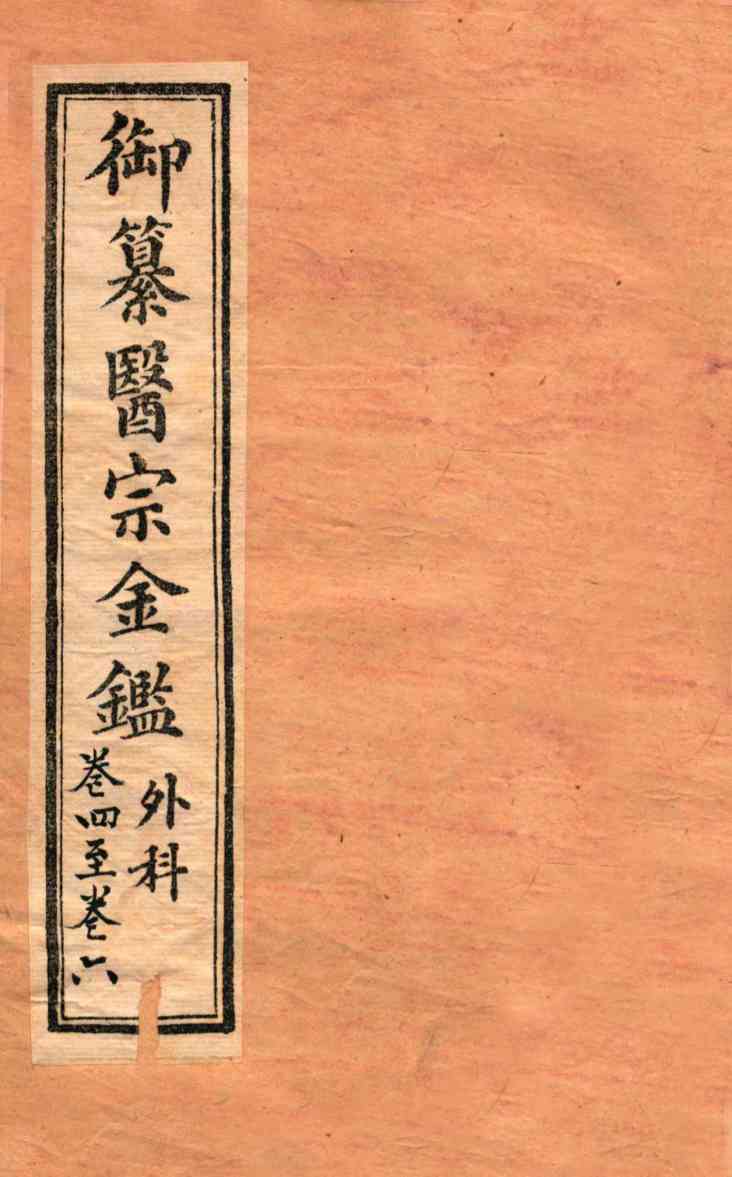 御纂醫宗金鑑
外科
卷四至卷六